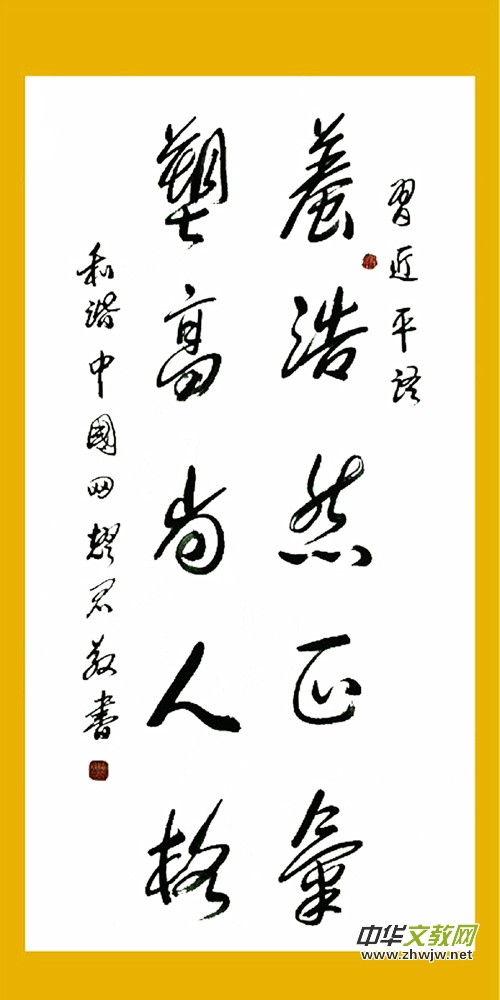 習近平語
養浩然正氣
塑高尚人格
和諧中國网 君敬書
中华文教网
www.zhwjw.net